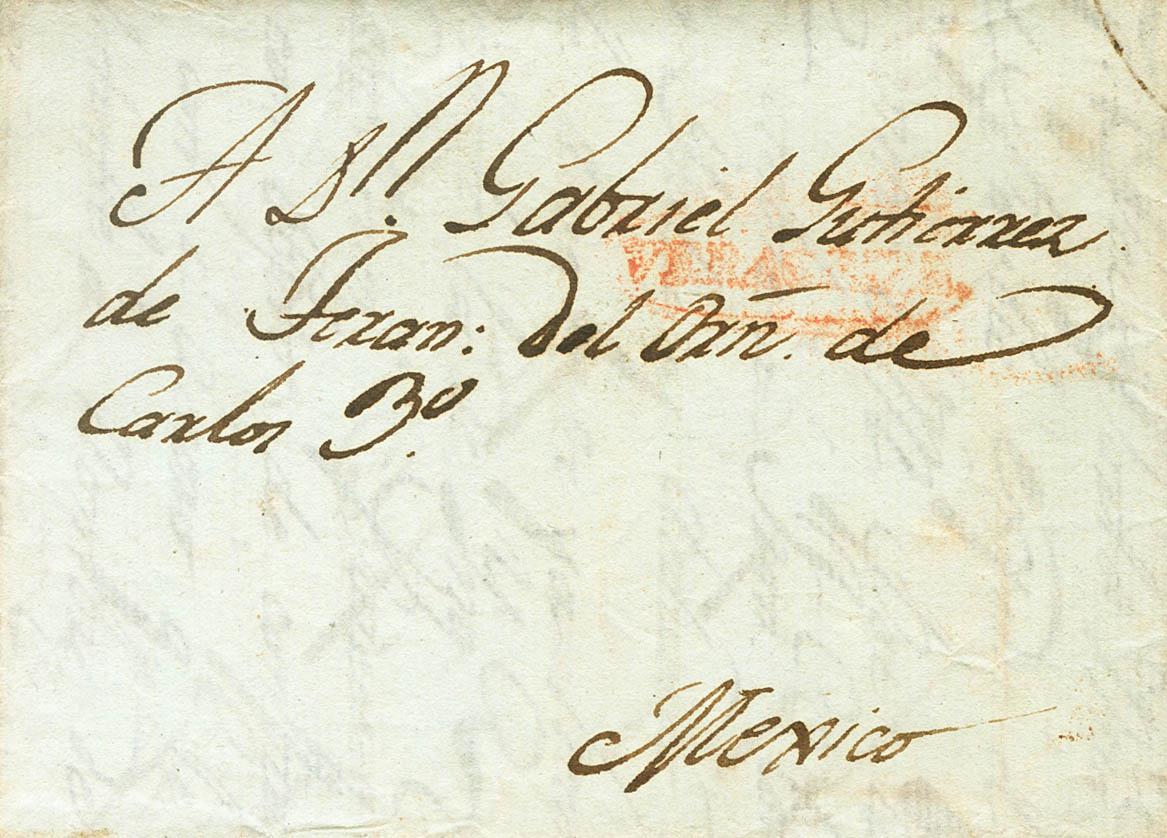 A Dn. Gabriel Gutierrez
VERACRUZ
de Teran: Del Orn. de
Carlos 3o.
Mexico